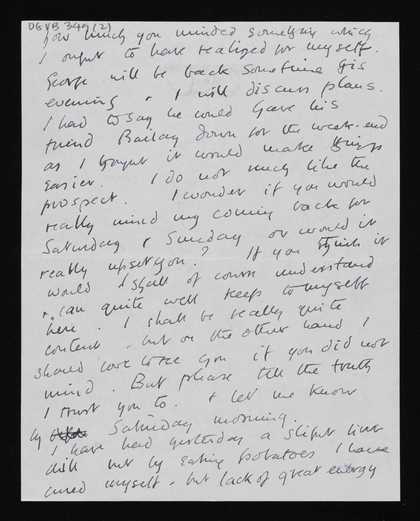 DGVB 349 (2)
how much you minded something which
I ought to have realized for myself.
George will be back sometime this
evening & I will discuss plans.
I had to say he could have his
friend down for the week-end
as I thought it would make things
easier. I do not much like the
prospect. I wonder if you would
really mind my coming back for
Saturday & Sunday or would it
really upset you? If you think it
would I shall of course understand
& can quite well keep to myself
here. I shall be really quite
content - but on the other hand I
should love to see you if you did not
mind. But please tell the truth
I trust you to. & let me know
by Saturday morning.
I have had yesterday a slight liver
chill but by eating potatoes I have
cured myself - but lack of great energy